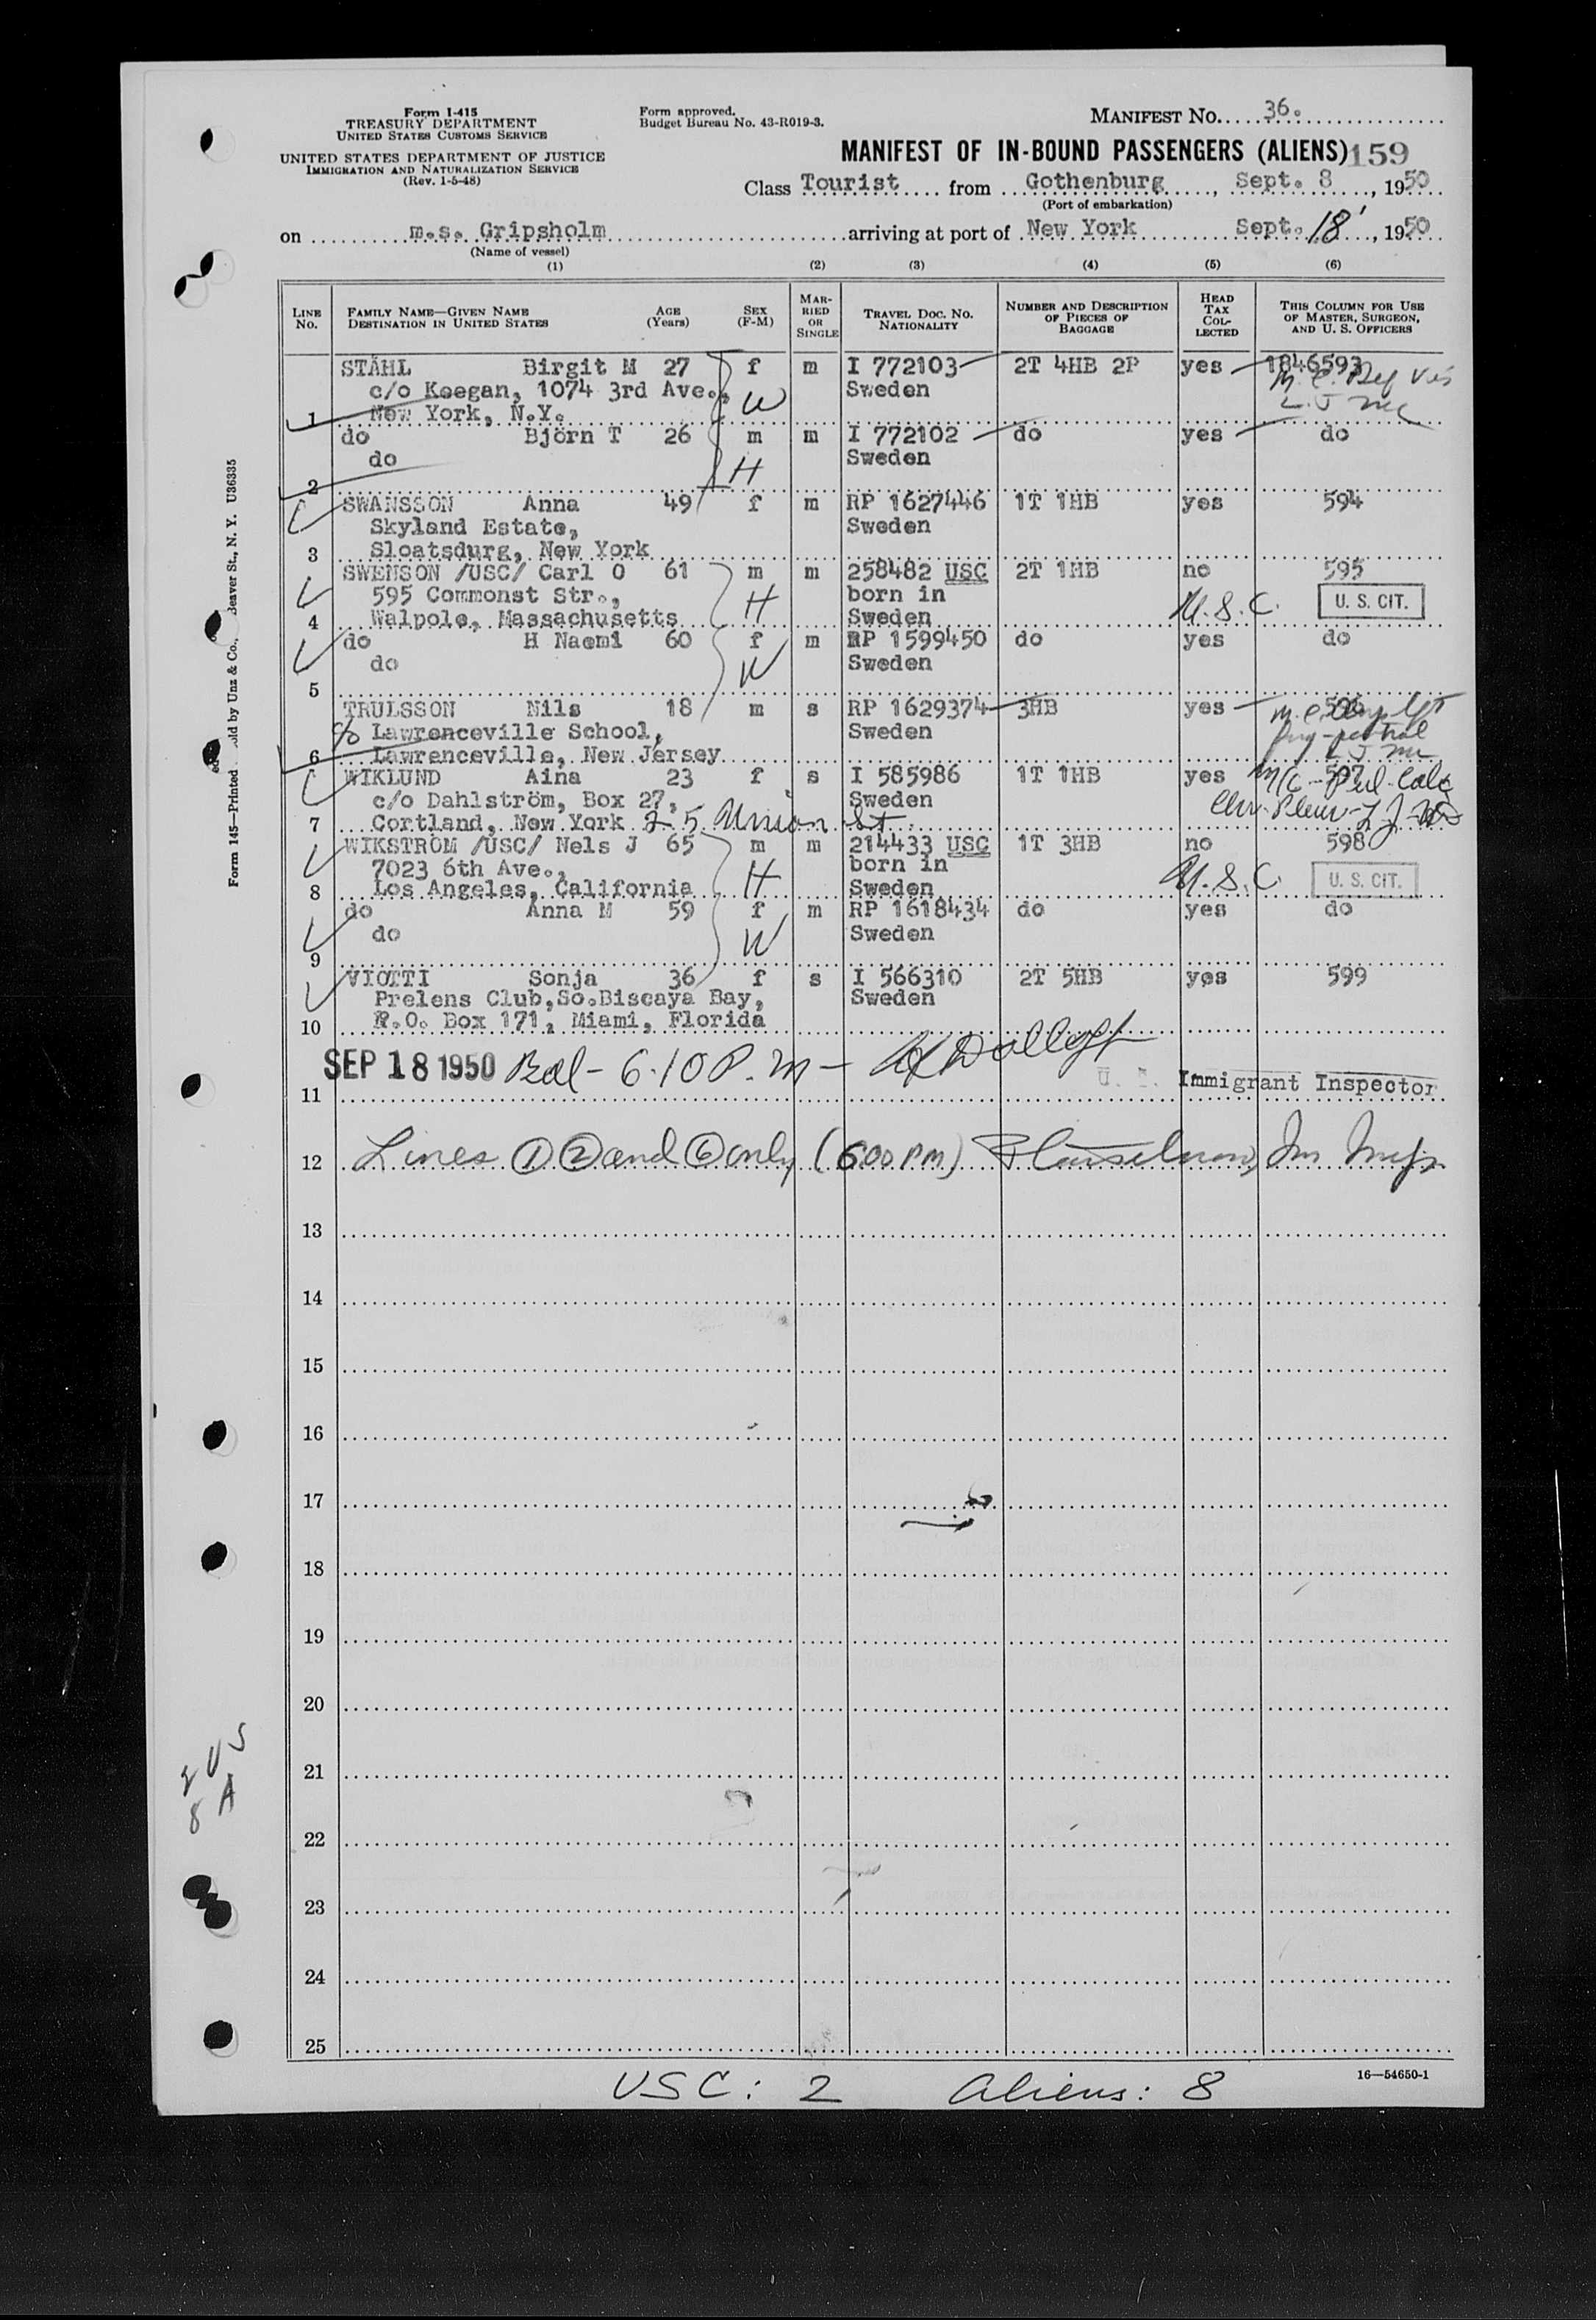 Form I-415
TREASURY DEPARTMENT
UNITED STATES CUSTOMS SERVICE
UNITED STATES DEPARTMENT OF JUSTICE
IMMIGRATION AND NATURALIZATION SERVICE
(Rev. 1-5-48)
Form approved.
Budget Bureau No. 43-R019-3.
MANIFEST No. 36.
MANIFEST OF IN-BOUND PASSENGERS (ALIENS) 159
Class Tourist from Gothenburg, Sept. 8, 1950
(Port of embarkation)
on m.s. Gripsholm arriving at port of New York Sept. 18, 1950
(Name of vessel)
(1) (2) (3) (4) (5) (6)
LINE No. FAMILY NAME—GIVEN NAME DESTINATION IN UNITED STATES AGE (Years) SEX (F-M) MARRIED OR SINGLE TRAVEL DOC. No. NATIONALITY NUMBER AND DESCRIPTION OF PIECES OF BAGGAGE HEAD TAX COLLECTED THIS COLUMN FOR USE OF MASTER, SURGEON, AND U. S. OFFICERS
STÅHL Birgit M 27 f m I 772103 2T 4HB 2P yes 1846593
c/o Keegan, 1074 3rd Ave., W Sweden
1 New York, N.Y.
do Björn T 26 m m I 772102 do yes do
do H Sweden
2
SWANSSON Anna 49 f m RP 1627446 1T 1HB yes 594
Skyland Estate, Sweden
3 Sloatsdurg, New York
SWENSON /USC/ Carl O 61 m m 258482 USC 2T 1HB no 595
595 Commonst Str., H born in U.S.C. U. S. CIT.
4 Walpole, Massachusetts Sweden
do H Naemi 60 f m RP 1599450 do yes do
do W Sweden
5
TRULSSON Nils 18 m s RP 1629374 3HB yes 596
c/o Lawrenceville School, Sweden
6 Lawrenceville, New Jersey
WIKLUND Aina 23 f s I 585986 1T 1HB yes 597
c/o Dahlström, Box 27, Sweden
7 Cortland, New York 25 Union St.
WIKSTRÖM /USC/ Nels J 65 m m 214433 USC 1T 3HB no 598
7023 6th Ave., H born in U.S.C. U. S. CIT.
8 Los Angeles, California Sweden
do Anna M 59 f m RP 1618434 do yes do
do W Sweden
9
VIOTTI Sonja 36 f s I 566310 2T 5HB yes 599
Prelens Club, So. Biscaya Bay, Sweden
10 P.O. Box 171, Miami, Florida
SEP 18 1950 Bal - 6.10 P.m -
11 U. S. Immigrant Inspector
12 Lines ① ② and ⑥ only (600 PM)
13
14
15
16
17
18
19
20
21
22
23
24
25
16—54650-1
USC: 2 Aliens: 8
Form 145—Printed Sold by Unz & Co., Beaver St., N. Y. U36335
2 US
8 A